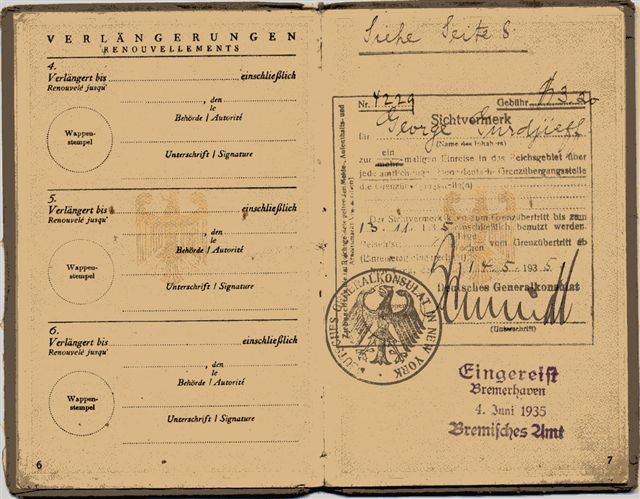 VERLÄNGERUNGEN
RENOUVELLEMENTS
4.
Verlängert bis einschließlich
Renouvelé jusqu'
, den
le
Behörde / Autorité
Wappen-
stempel
Unterschrift / Signature
5.
Verlängert bis einschließlich
Renouvelé jusqu'
, den
le
Behörde / Autorité
Wappen-
stempel
Unterschrift / Signature
6.
Verlängert bis einschließlich
Renouvelé jusqu'
, den
le
Behörde / Autorité
Wappen-
stempel
Unterschrift / Signature
6
Siehe Seite 8
Nr. 4229 Gebühr
Sichtvermerk
für George Gurdjieff
(Name des Inhabers)
ein
zur mehrmaligen Einreise in das Reichsgebiet über
jede amtlich deutsche Grenzübergangsstelle
die Grenzübergangsstelle(n)
Der Sichtvermerk kann zum Grenzübertritt bis zum
13.11. einschließlich, benutzt werden
vom Grenzübertritt ab
14.5.1935
Deutsches Generalkonsulat
(Unterschrift)
DEUTSCHES GENERALKONSULAT IN NEW YORK
Eingereist
Bremerhaven
4. Juni 1935
Bremisches Amt
7